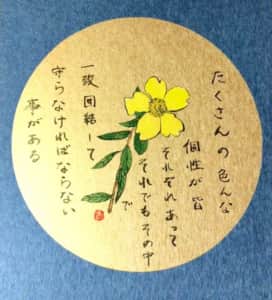 たくさんの色んな
個性が皆
それぞれあって
それでもその中
で
一致団結して
守らなければならない
事がある